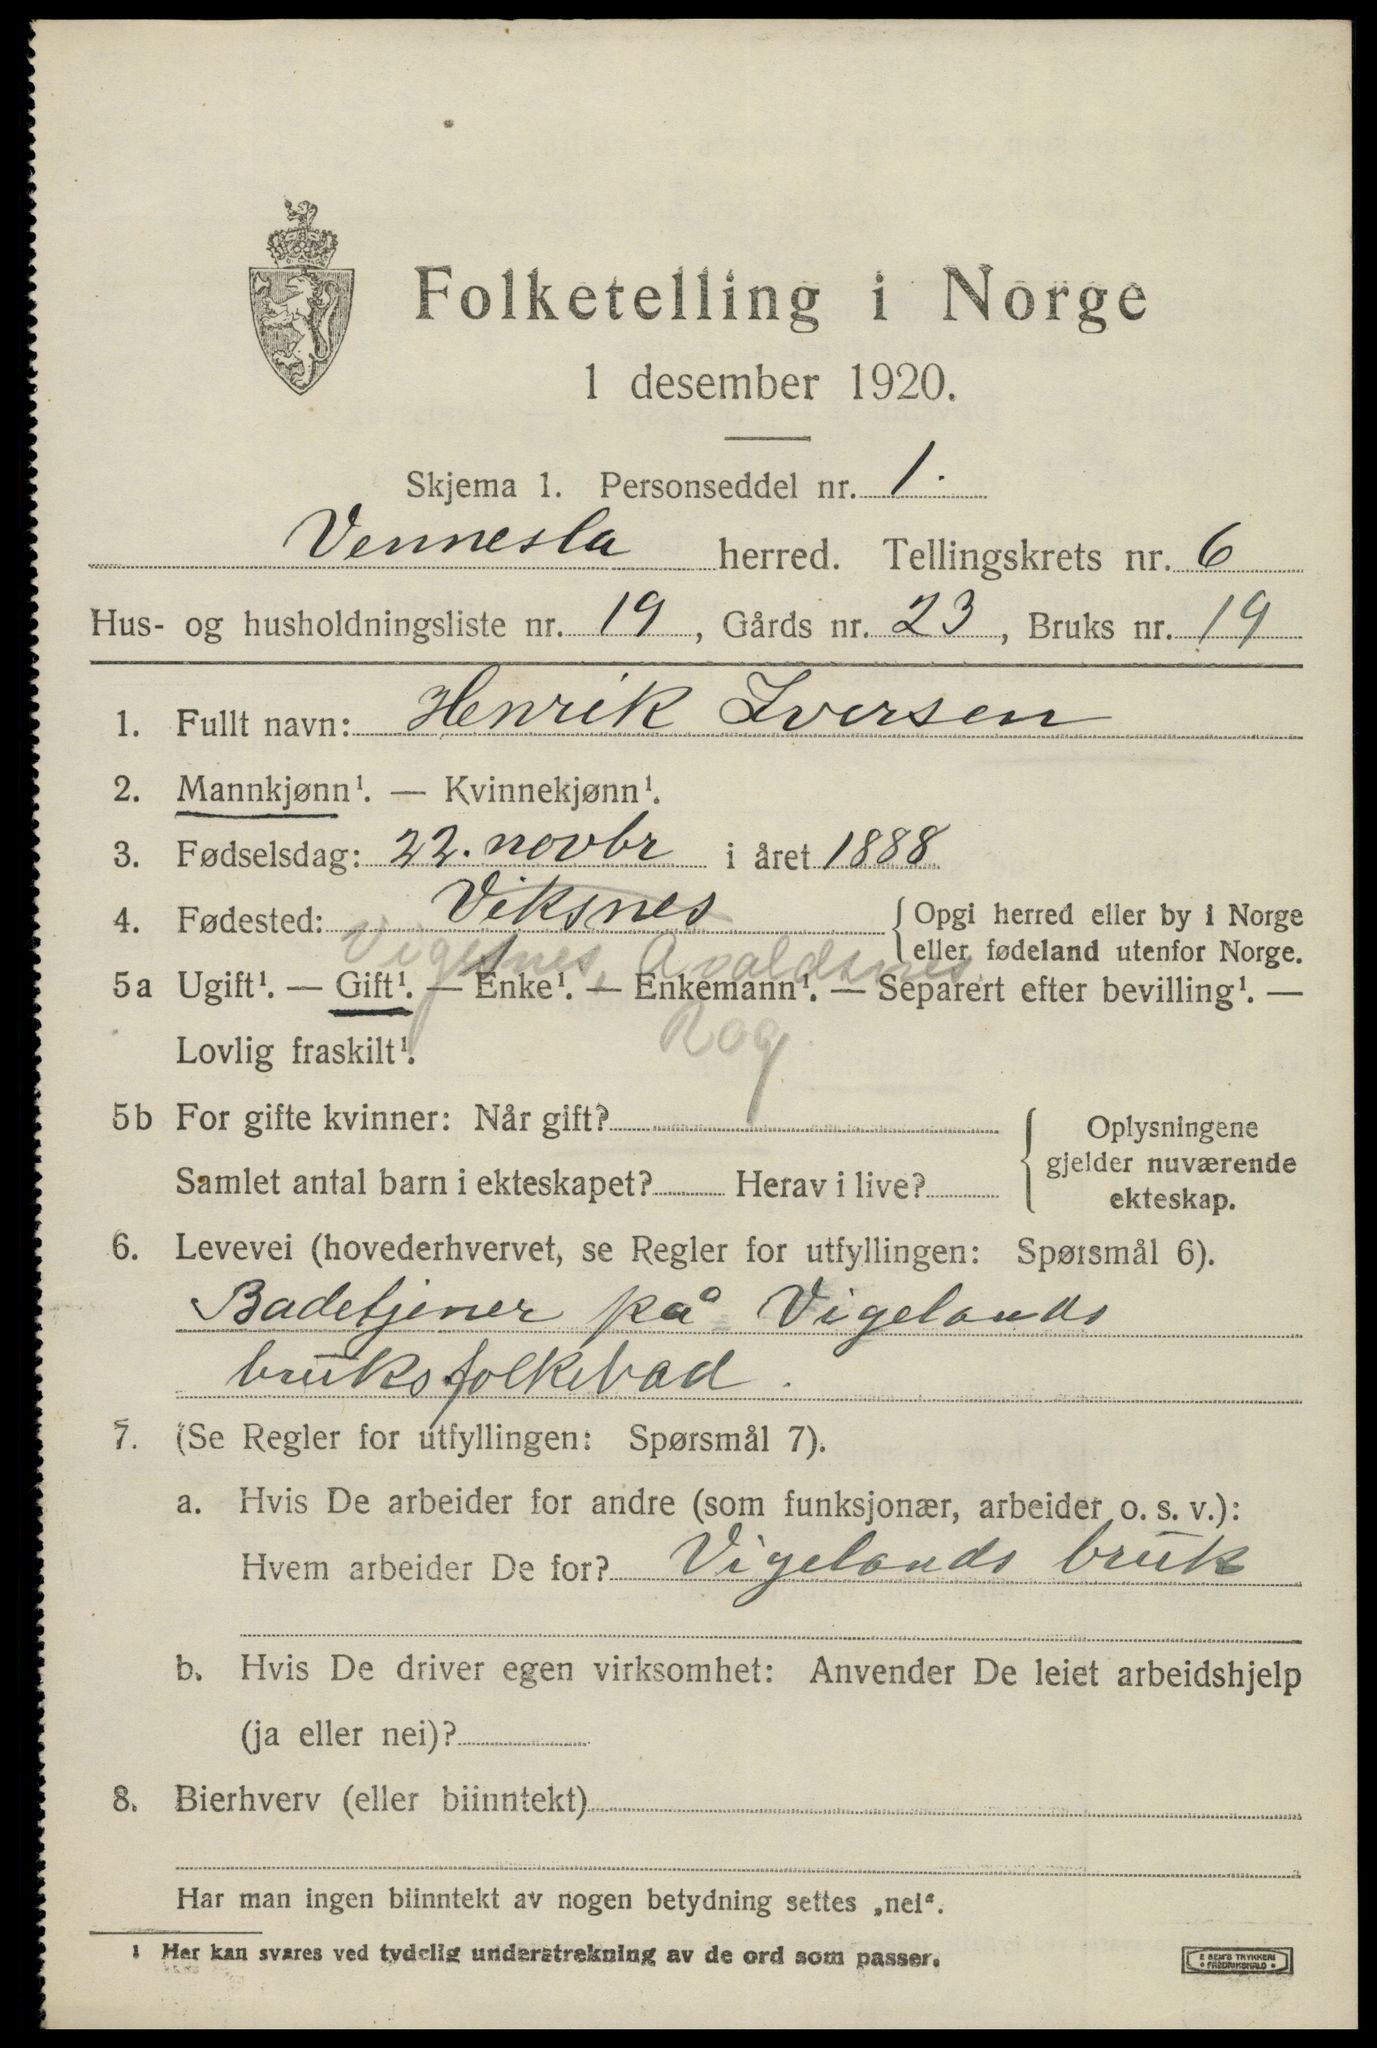 Folketelling i Norge
1 desember 1920.
Skjema 1. Personseddel nr. 1.
Vennesla herred. Tellingskrets nr. 6
Hus- og husholdningsliste nr. 19, Gårds nr. 23, Bruks nr. 19
1. Fullt navn: Henrik Iversen
2. Mannkjønn¹. — Kvinnekjønn¹.
3. Fødselsdag: 22. novbr i året 1888
4. Fødested: Viksnes { Opgi herred eller by i Norge
eller fødeland utenfor Norge.
Vigesnes, Avaldsnes
5a Ugift¹. — Gift¹. — Enke¹. — Enkemann¹. — Separert efter bevilling¹. —
Rog
Lovlig fraskilt¹.
5b For gifte kvinner: Når gift?
Samlet antal barn i ekteskapet? Herav i live?
Oplysningene
gjelder nuværende
ekteskap.
6. Levevei (hovederhvervet, se Regler for utfyllingen: Spørsmål 6).
Badetjener på Vigelands
bruks folkebad.
7. (Se Regler for utfyllingen: Spørsmål 7).
a. Hvis De arbeider for andre (som funksjonær, arbeider o. s. v.):
Hvem arbeider De for? Vigelands bruk
b. Hvis De driver egen virksomhet: Anvender De leiet arbeidshjelp
(ja eller nei)?
8. Bierhverv (eller biinntekt)
Har man ingen biinntekt av nogen betydning settes „nei“.
1 Her kan svares ved tydelig understrekning av de ord som passer.
E SEM'S TRYKKERI
FREDRIKSHALD